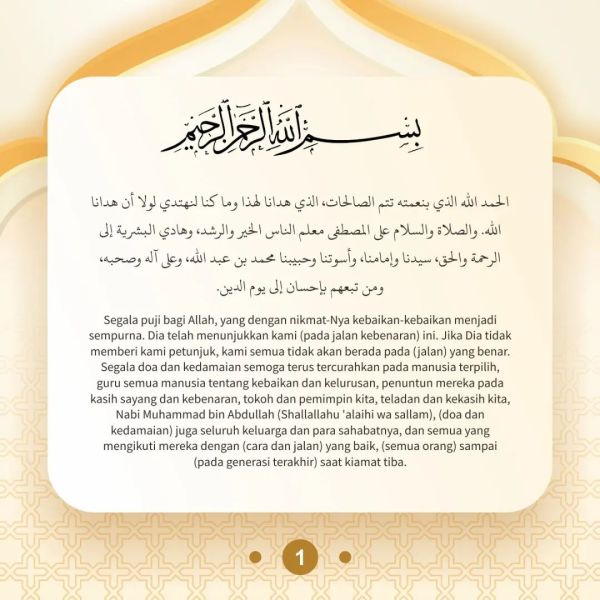 بسم الله الرحمن الرحيم
الحمد لله الذي بنعمته تتم الصالحات، الذي هدانا لهذا وما كنا لنهتدي لولا أن هدانا
الله. والصلاة والسلام على المصطفى معلم الناس الخير والرشد، وهادي البشرية إلى
الرحمة والحق، سيدنا وإمامنا، وأسوتنا وحبيبنا محمد بن عبد الله، وعلى آله وصحبه،
ومن تبعهم بإحسان إلى يوم الدين.
Segala puji bagi Allah, yang dengan nikmat-Nya kebaikan-kebaikan menjadi
sempurna. Dia telah menunjukkan kami (pada jalan kebenaran) ini. Jika Dia tidak
memberi kami petunjuk, kami semua tidak akan berada pada (jalan) yang benar.
Segala doa dan kedamaian semoga terus tercurahkan pada manusia terpilih,
guru semua manusia tentang kebaikan dan kelurusan, penuntun mereka pada
kasih sayang dan kebenaran, tokoh dan pemimpin kita, teladan dan kekasih kita,
Nabi Muhammad bin Abdullah (Shallallahu 'alaihi wa sallam), (doa dan
kedamaian) juga seluruh keluarga dan para sahabatnya, dan semua yang
mengikuti mereka dengan (cara dan jalan) yang baik, (semua orang) sampai
(pada generasi terakhir) saat kiamat tiba.
1